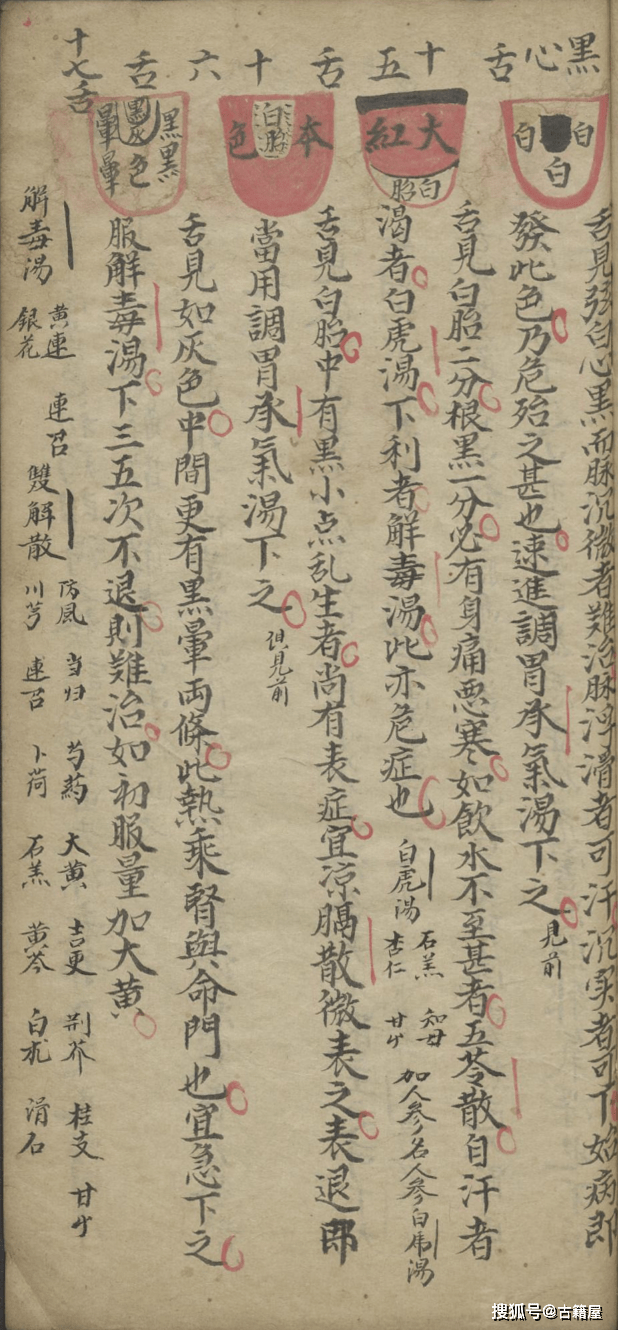 黑心舌
白
白
白
舌見弦白心黑而脉沉微者難治脉浮滑者可汗沉实者可下始病即
發此色乃危殆之甚也速進調胃承氣湯下之見前
十五舌
大紅
白胎
舌見白胎二分根黑一分必有身痛恶寒如飲水不至甚者五苓散自汗者
渴者白虎湯下利者解毒湯此亦危症也
白虎湯
石羔 知母
杏仁 甘屮
加人参名人参白虎湯
十六舌
本色
白胎
舌見白胎中有黑小点乱生者尚有表症宜凉膈散微表之表退即
當用調胃承氣湯下之俱見前
十七舌
黑暈
灰色
黑暈
舌見如灰色中間更有黑暈両條此熱乘腎與命門也宜急下之
服解毒湯下三五次不退則難治如初服量加大黄
解毒湯
黄連 連召
銀花
雙解散
防風 当归 芍药 大黄 吉更 荆芥 桂支 甘屮
川芎 連召 卜荷 石羔 黄芩 白朮 滑石
搜狐号@古籍屋